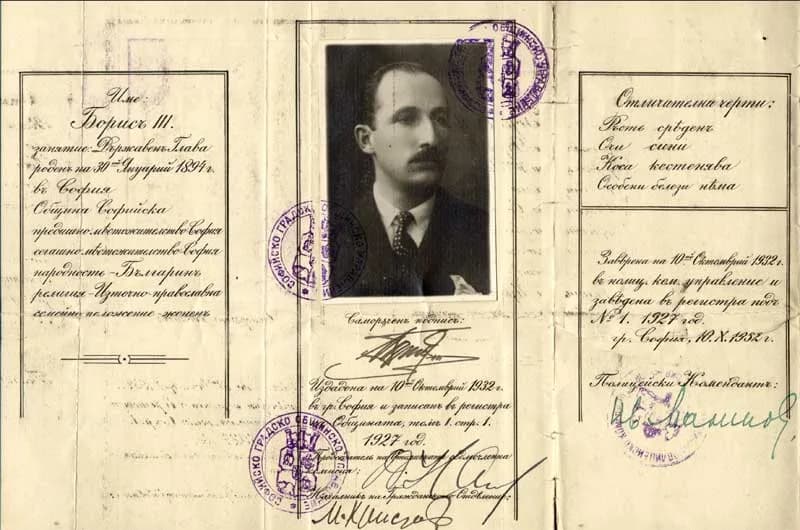 Име:
Борисъ III.
занятие: Държавенъ Глава
роденъ на 30ий Януарий 1894 г.
въ София
Община Софийска
предишно мѣстожителство София
сегашно мѣстожителство София
народность Българинъ
религия Източно-православна
семейно положение жененъ
СОФИЙСКО ГРАДСКО ОБЩИНСКО УПРАВЛЕНИЕ
ОБЩИНСКО УПРАВЛЕНИЕ
Саморѫченъ подписъ:
Издадена на 10ий Октомврий 1932
въ гр. София и записанъ въ регистра
Общината, томъ 1. стр. 1.
1927 год.
Председатель на
комисия:
Началникъ на Гражданското Отдѣление:
СОФИЙСКО ГРАДСКО ОБЩИНСКО УПРАВЛЕНИЕ
Отличителна черти:
Ръстъ срѣденъ
Очи сини
Коса кестенява
Особени белези нѣма
Завѣрена на 10ий Октомврий 1932 г.
въ полиц. ком. управление и
завѣдена въ регистра подъ
№ 1. 1927 год.
гр. София, 10. X. 1932 г.
Полицейски Комендантъ: